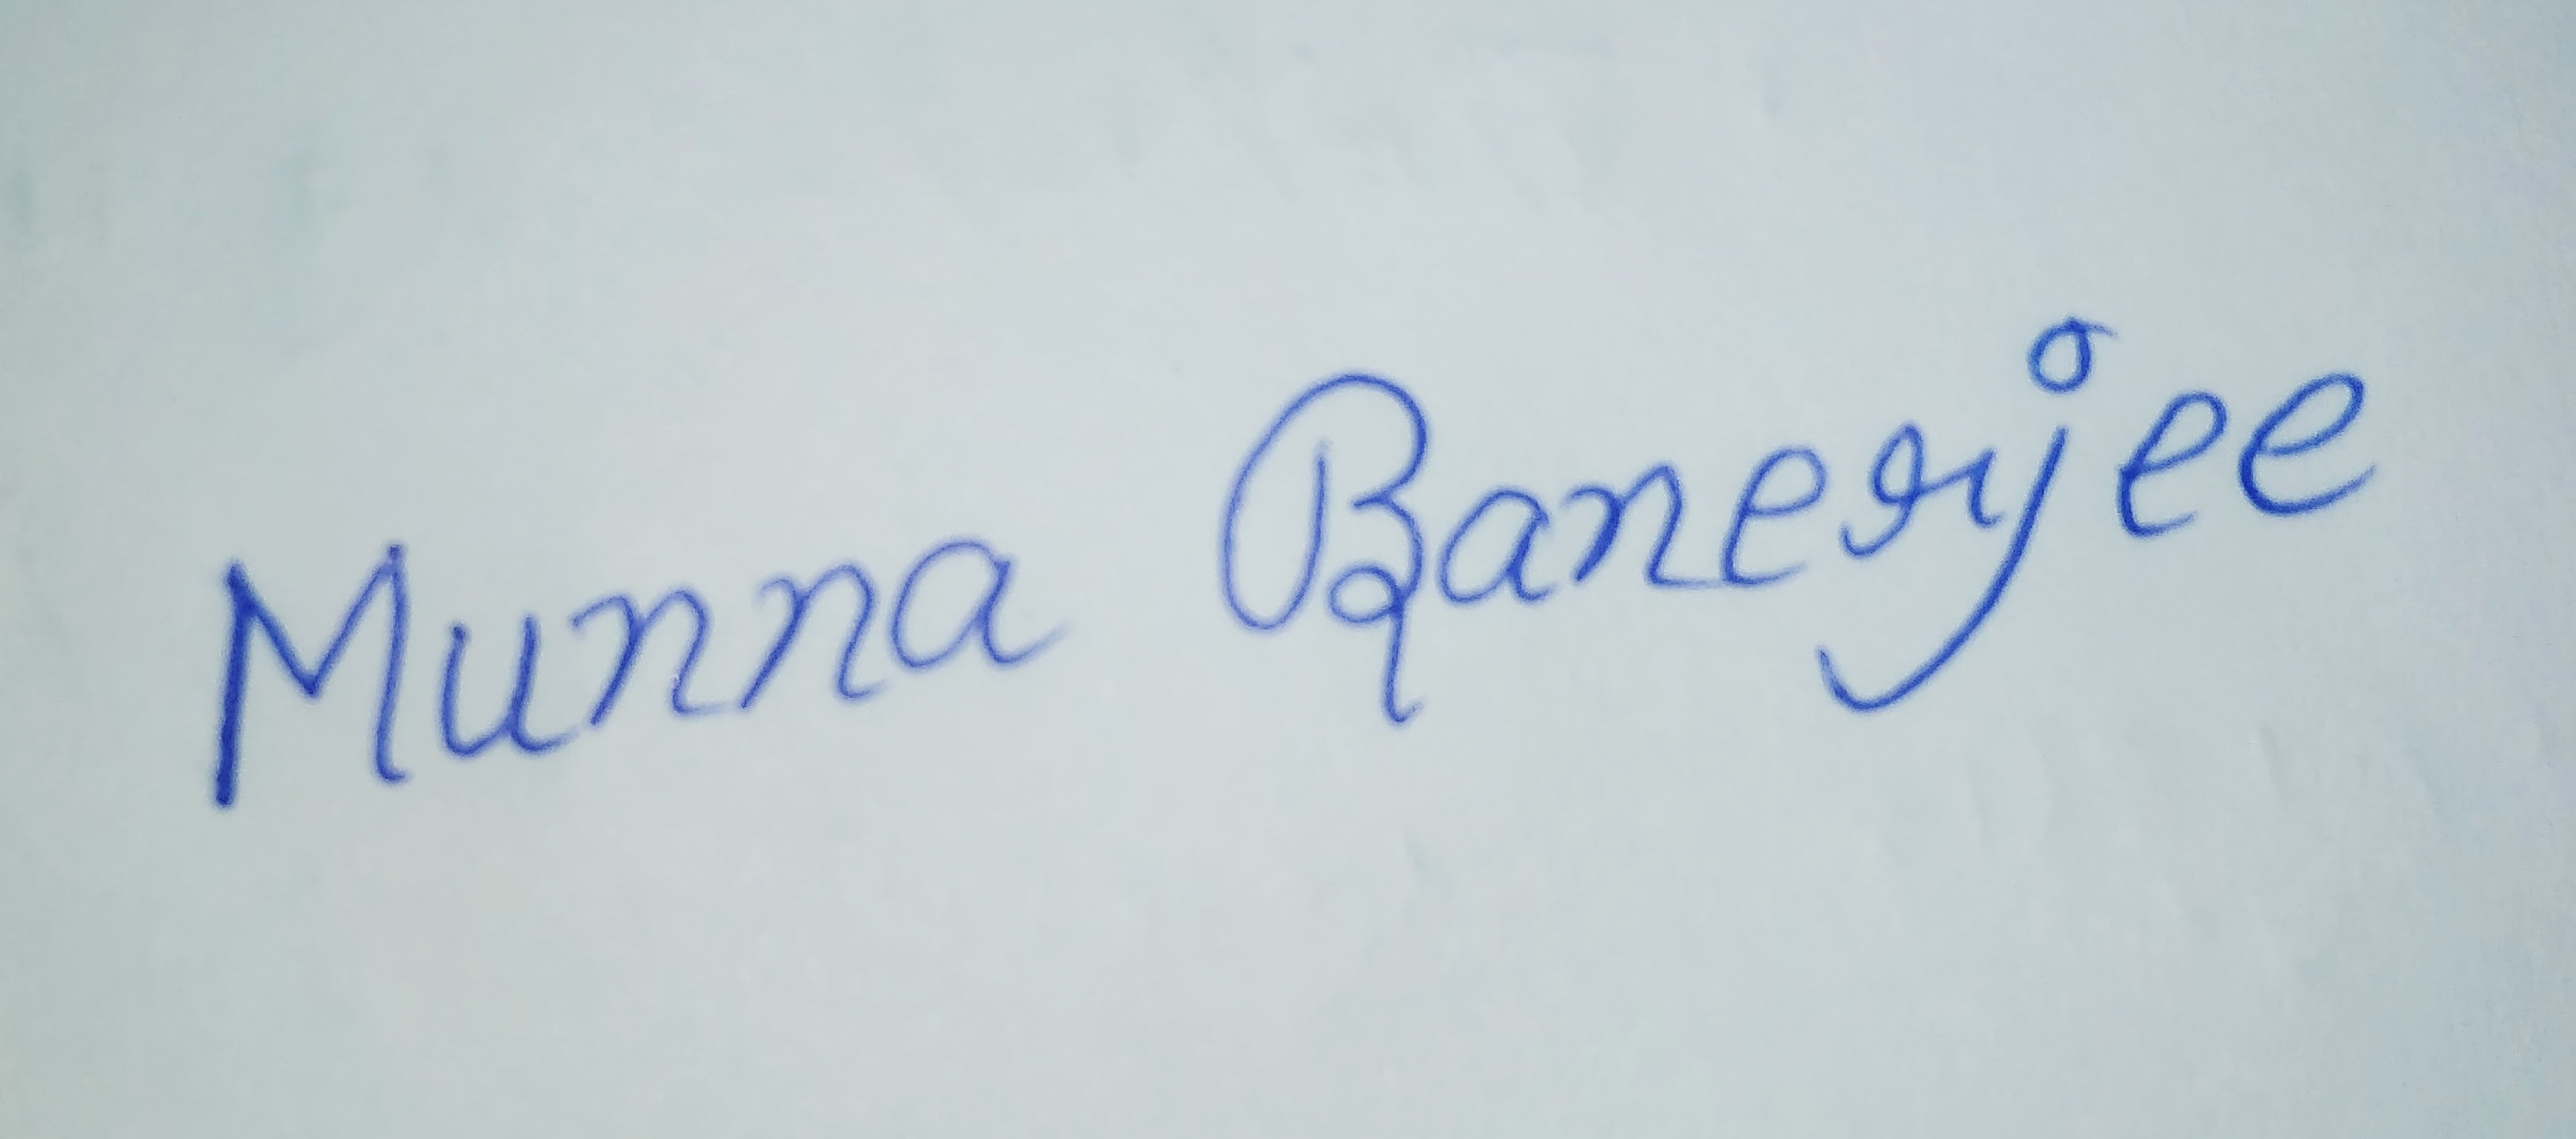 Munna Banerjee